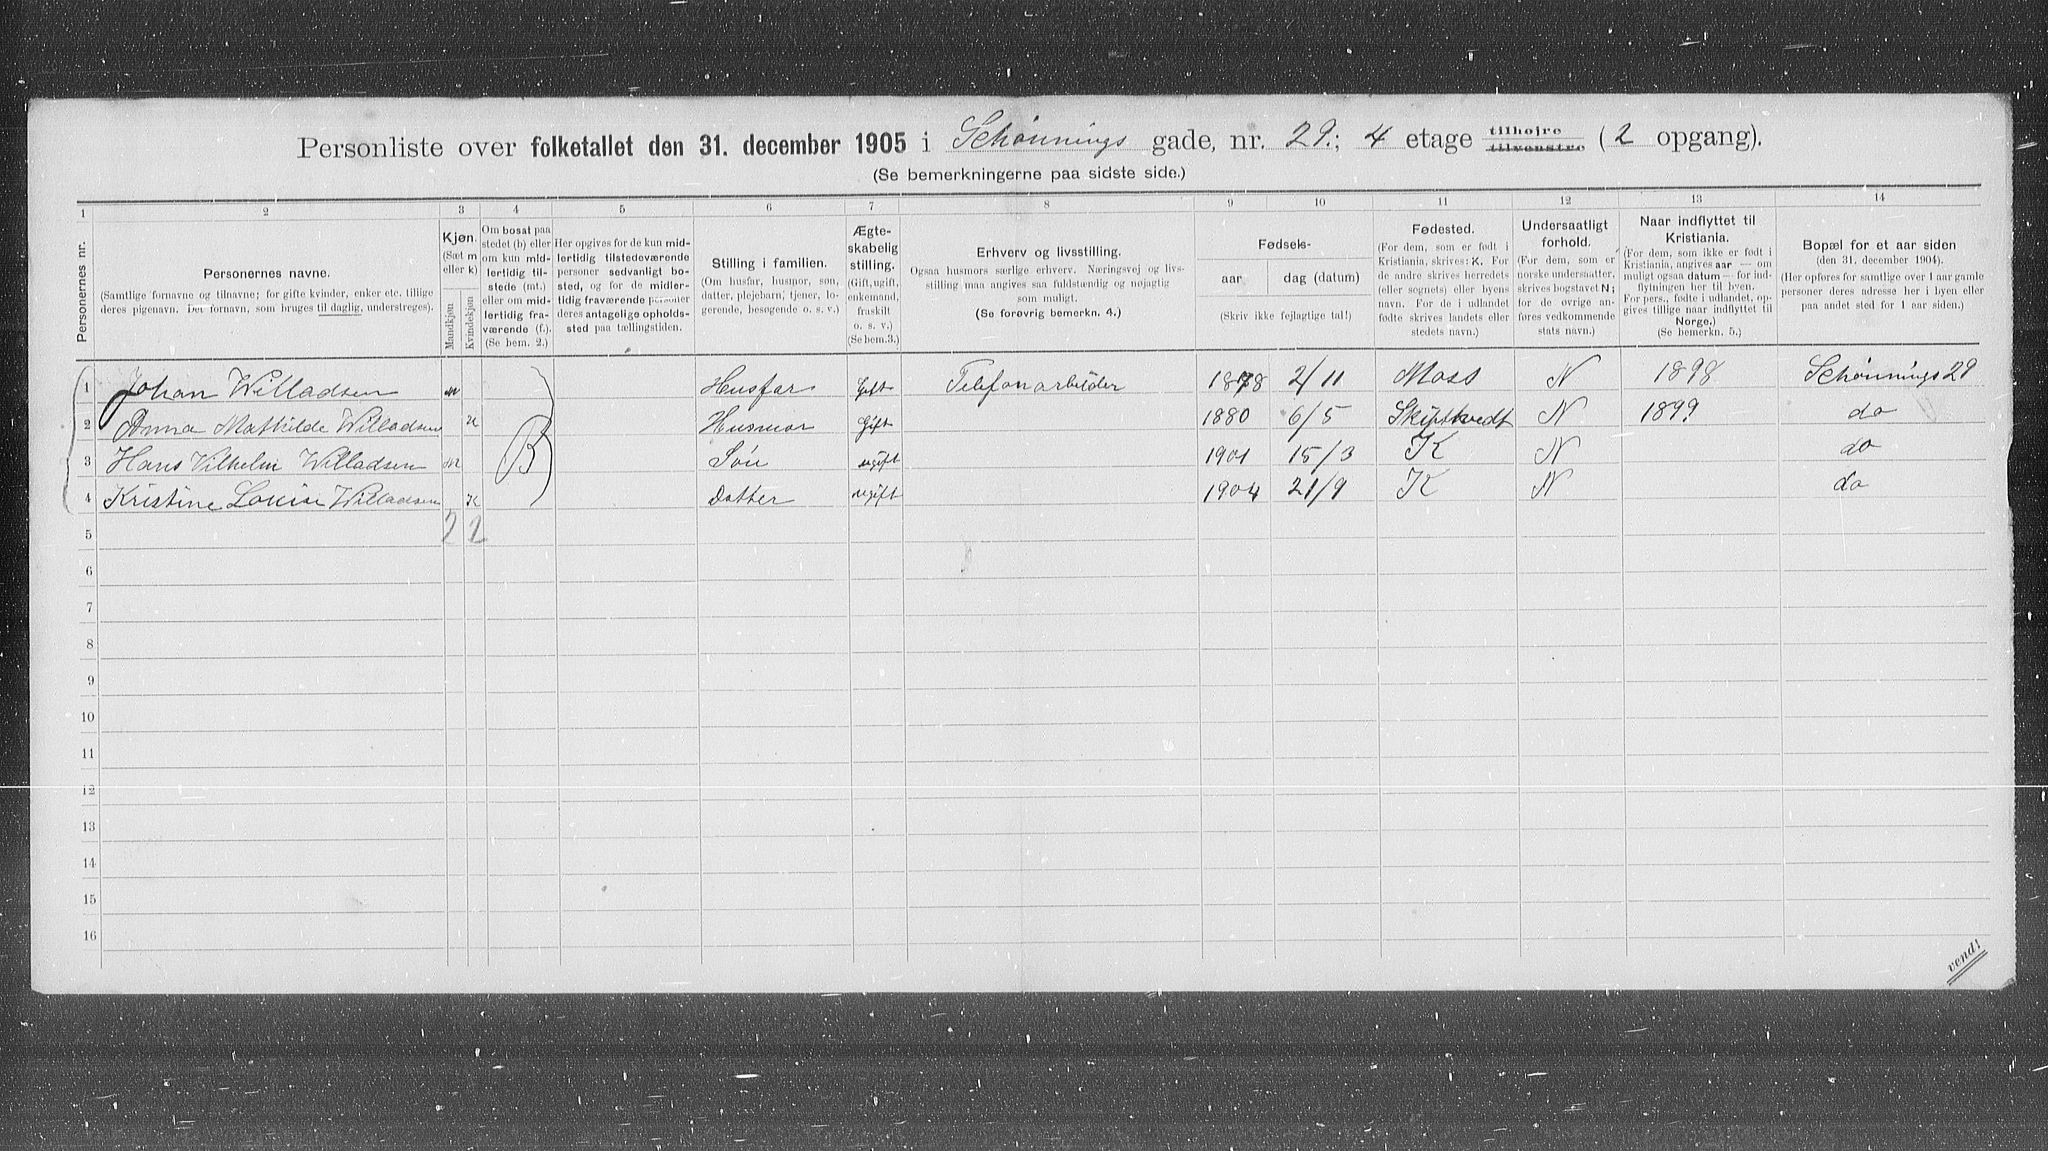 Personliste over folketallet den 31. december 1905 i Schønnings gade, nr. 29.; 4 etage tilhøjre tilvenstre (2 opgang).
(Se bemerkningerne paa sidste side.)
1 2 3 4 5 6 7 8 9 10 11 12 13 14
Personernes nr.
Personernes navne.
(Samtlige fornavne og tilnavne; for gifte kvinder, enker etc. tillige deres pigenavn. Det fornavn, som bruges til daglig, understreges).
Kjøn.
(Sæt m eller k)
Mandkjøn
Kvindekjøn
Om bosat paa stedet (b) eller om kun midlertidig tilstede (mt.) eller om midlertidig fraværende (f.).
(Se bem. 2.)
Her opgives for de kun midlertidig tilstedeværende personer sedvanligt bosted, og for de midlertidig fraværende personer deres antagelige opholdssted paa tællingstiden.
Stilling i familien.
(Om husfar, husmor, søn, datter, plejebarn, tjener, logerende, besøgende o. s. v.)
Ægteskabelig stilling.
(Gift, ugift, enkemand, fraskilt o. s. v.)
(Se bem.3.)
Erhverv og livsstilling.
Ogsaa husmors særlige erhverv. Næringsvej og livsstilling maa angives saa fuldstændig og nøjagtig som muligt.
(Se forøvrig bemerkn. 4.)
Fødsels-
aar
dag (datum)
(Skriv ikke fejlagtige tal!)
Fødested.
(For dem, som er født i Kristiania, skrives: K. For de andre skrives herredets (eller sognets) eller byens navn. For de i udlandet fødte skrives landets eller stedets navn.)
Undersaatligt forhold.
(For dem, som er norske undersaatter, skrives bogstavet N; for de øvrige anføres vedkommende stats navn.)
Naar indflyttet til Kristiania.
(For dem, som ikke er født i Kristiania, angives aar — om muligt ogsaa datum — for indflytningen her til byen. For pers., fødte i udlandet, opgives tillige naar indflyttet til Norge.)
(Se bemerkn. 5.)
Bopæl for et aar siden
(den 31. december 1904).
(Her opføres for samtlige over 1 aar gamle personer deres adresse her i byen eller paa andet sted for 1 aar siden.)
1 Johan Willadsen m Husfar Gift Telefonarbeider 1878 2/11 Moss N 1898 Schønnings 29
2 Anna Mathilde Willadsen K Husmor Gift 1880 6/5 Skiptvedt N 1899 do
B
3 Hans Vilhelm Willadsen M Søn ugift 1901 15/3 K N do
4 Kristine Louise Willadsen K Datter ugift 1904 21/9 K N do
5 2 2
6
7
8
9
10
11
12
13
14
15
16
vend!